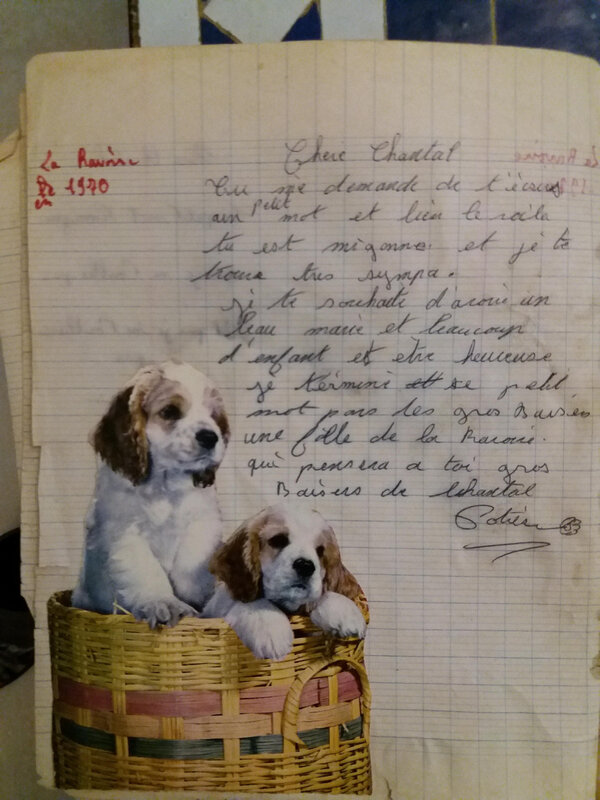 La Ravoire
en 1970
Chere Chantal
Tu me demande de t'écrire
un petit mot et bien le voila
tu est migonne et je te
trouve tres sympa.
je te souhaite d'avoir un
beau marie et beaucoup
d'enfant et etre heureuse
je terminé se petit
mot pars les gros Baisers
une fille de la Ravoire.
qui pensera a toi gros
Baisers de Chantal